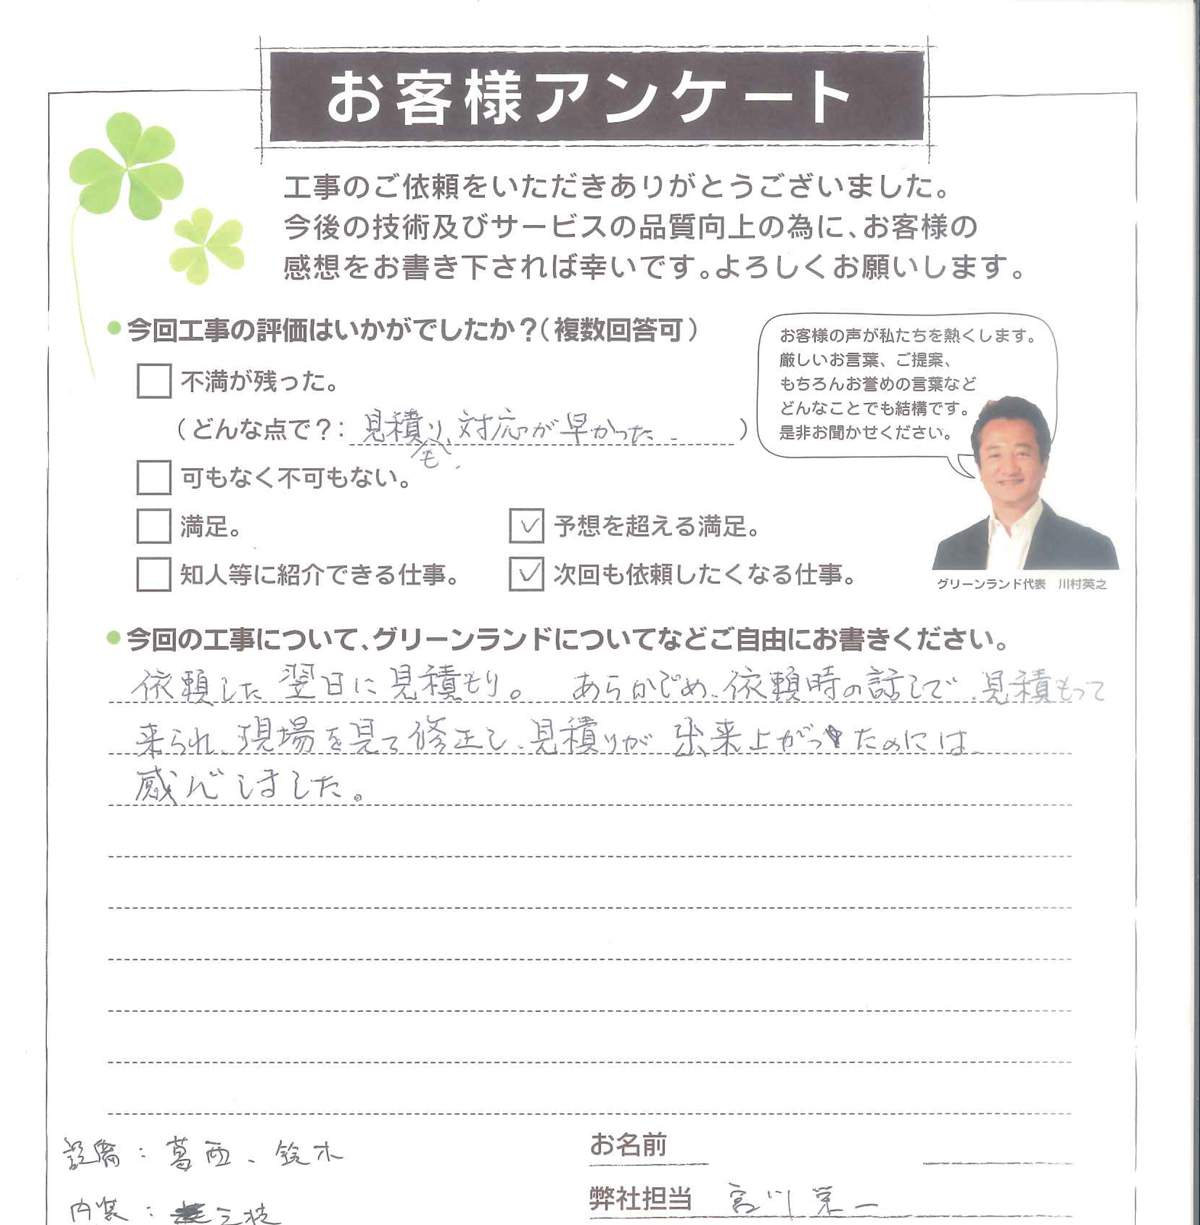 お客様アンケート
工事のご依頼をいただきありがとうございました。
今後の技術及びサービスの品質向上の為に、お客様の
感想をお書き下されば幸いです。よろしくお願いします。
今回工事の評価はいかがでしたか?(複数回答可)
お客様の声が私たちを熱くします。
厳しいお言葉、ご提案、
もちろんお誉めの言葉など
どんなことでも結構です。
是非お聞かせください。
不満が残った。
(どんな点で?: 見積り、対応が早かった。)
可もなく不可もない。
満足。 予想を超える満足。
知人等に紹介できる仕事。 次回も依頼したくなる仕事。
グリーンランド代表 川村英之
今回の工事について、グリーンランドについてなどご自由にお書きください。
依頼した翌日に見積もり。 あらかじめ、依頼時の話しで、見積もって
来られ、現場を見て修正し、見積りが出来上がったのには
感心しました。
設備:葛西、鈴木
お名前
内装:
弊社担当 宮川栄一